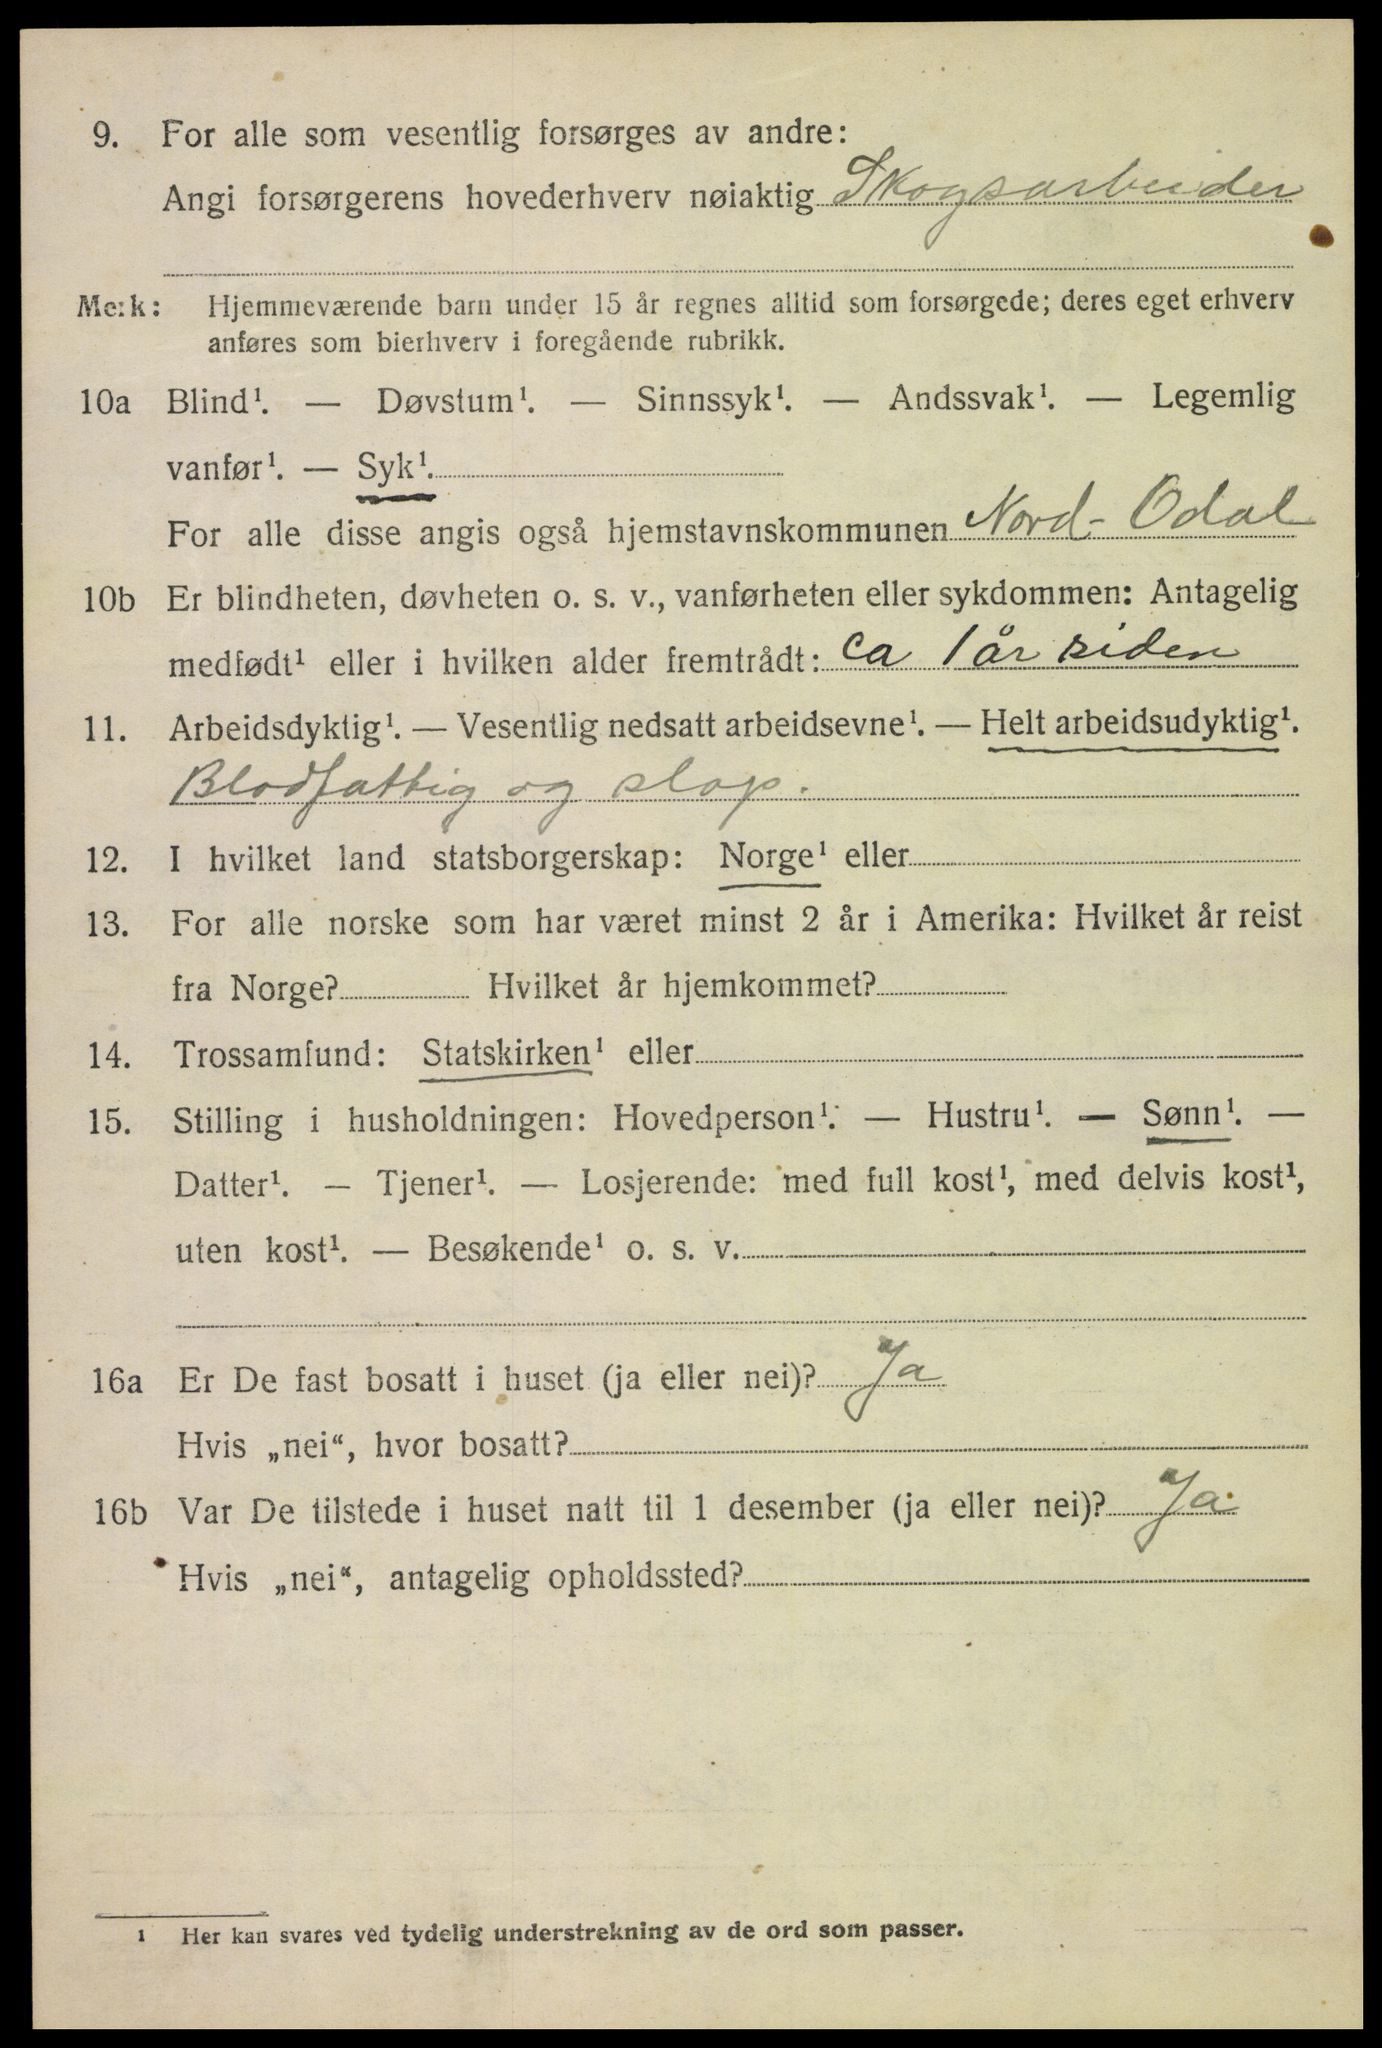 9. For alle som vesentlig forsørges av andre:
Angi forsørgerens hovederhverv nøiaktig Skogsarbeider
Merk: Hjemmeværende barn under 15 år regnes alltid som forsørgede; deres eget erhverv
anføres som bierhverv i foregående rubrikk.
10a Blind¹. — Døvstum¹. — Sinnssyk¹. — Andssvak¹. — Legemlig
vanfør¹. — Syk¹.
For alle disse angis også hjemstavnskommunen Nord-Odal
10b Er blindheten, døvheten o. s. v., vanførheten eller sykdommen: Antagelig
medfødt¹ eller i hvilken alder fremtrådt: ca 1 år siden
11. Arbeidsdyktig¹. — Vesentlig nedsatt arbeidsevne¹. — Helt arbeidsudyktig¹.
Blodfattig og slap.
12. I hvilket land statsborgerskap: Norge¹ eller
13. For alle norske som har været minst 2 år i Amerika: Hvilket år reist
fra Norge? Hvilket år hjemkommet?
14. Trossamfund: Statskirken¹ eller
15. Stilling i husholdningen: Hovedperson¹. — Hustru¹. — Sønn¹. —
Datter¹. — Tjener¹. — Losjerende: med full kost¹, med delvis kost¹,
uten kost¹. — Besøkende¹ o. s. v.
16a Er De fast bosatt i huset (ja eller nei)? Ja
Hvis „nei“, hvor bosatt?
16b Var De tilstede i huset natt til 1 desember (ja eller nei)? Ja
Hvis „nei“, antagelig opholdssted?
1 Her kan svares ved tydelig understrekning av de ord som passer.